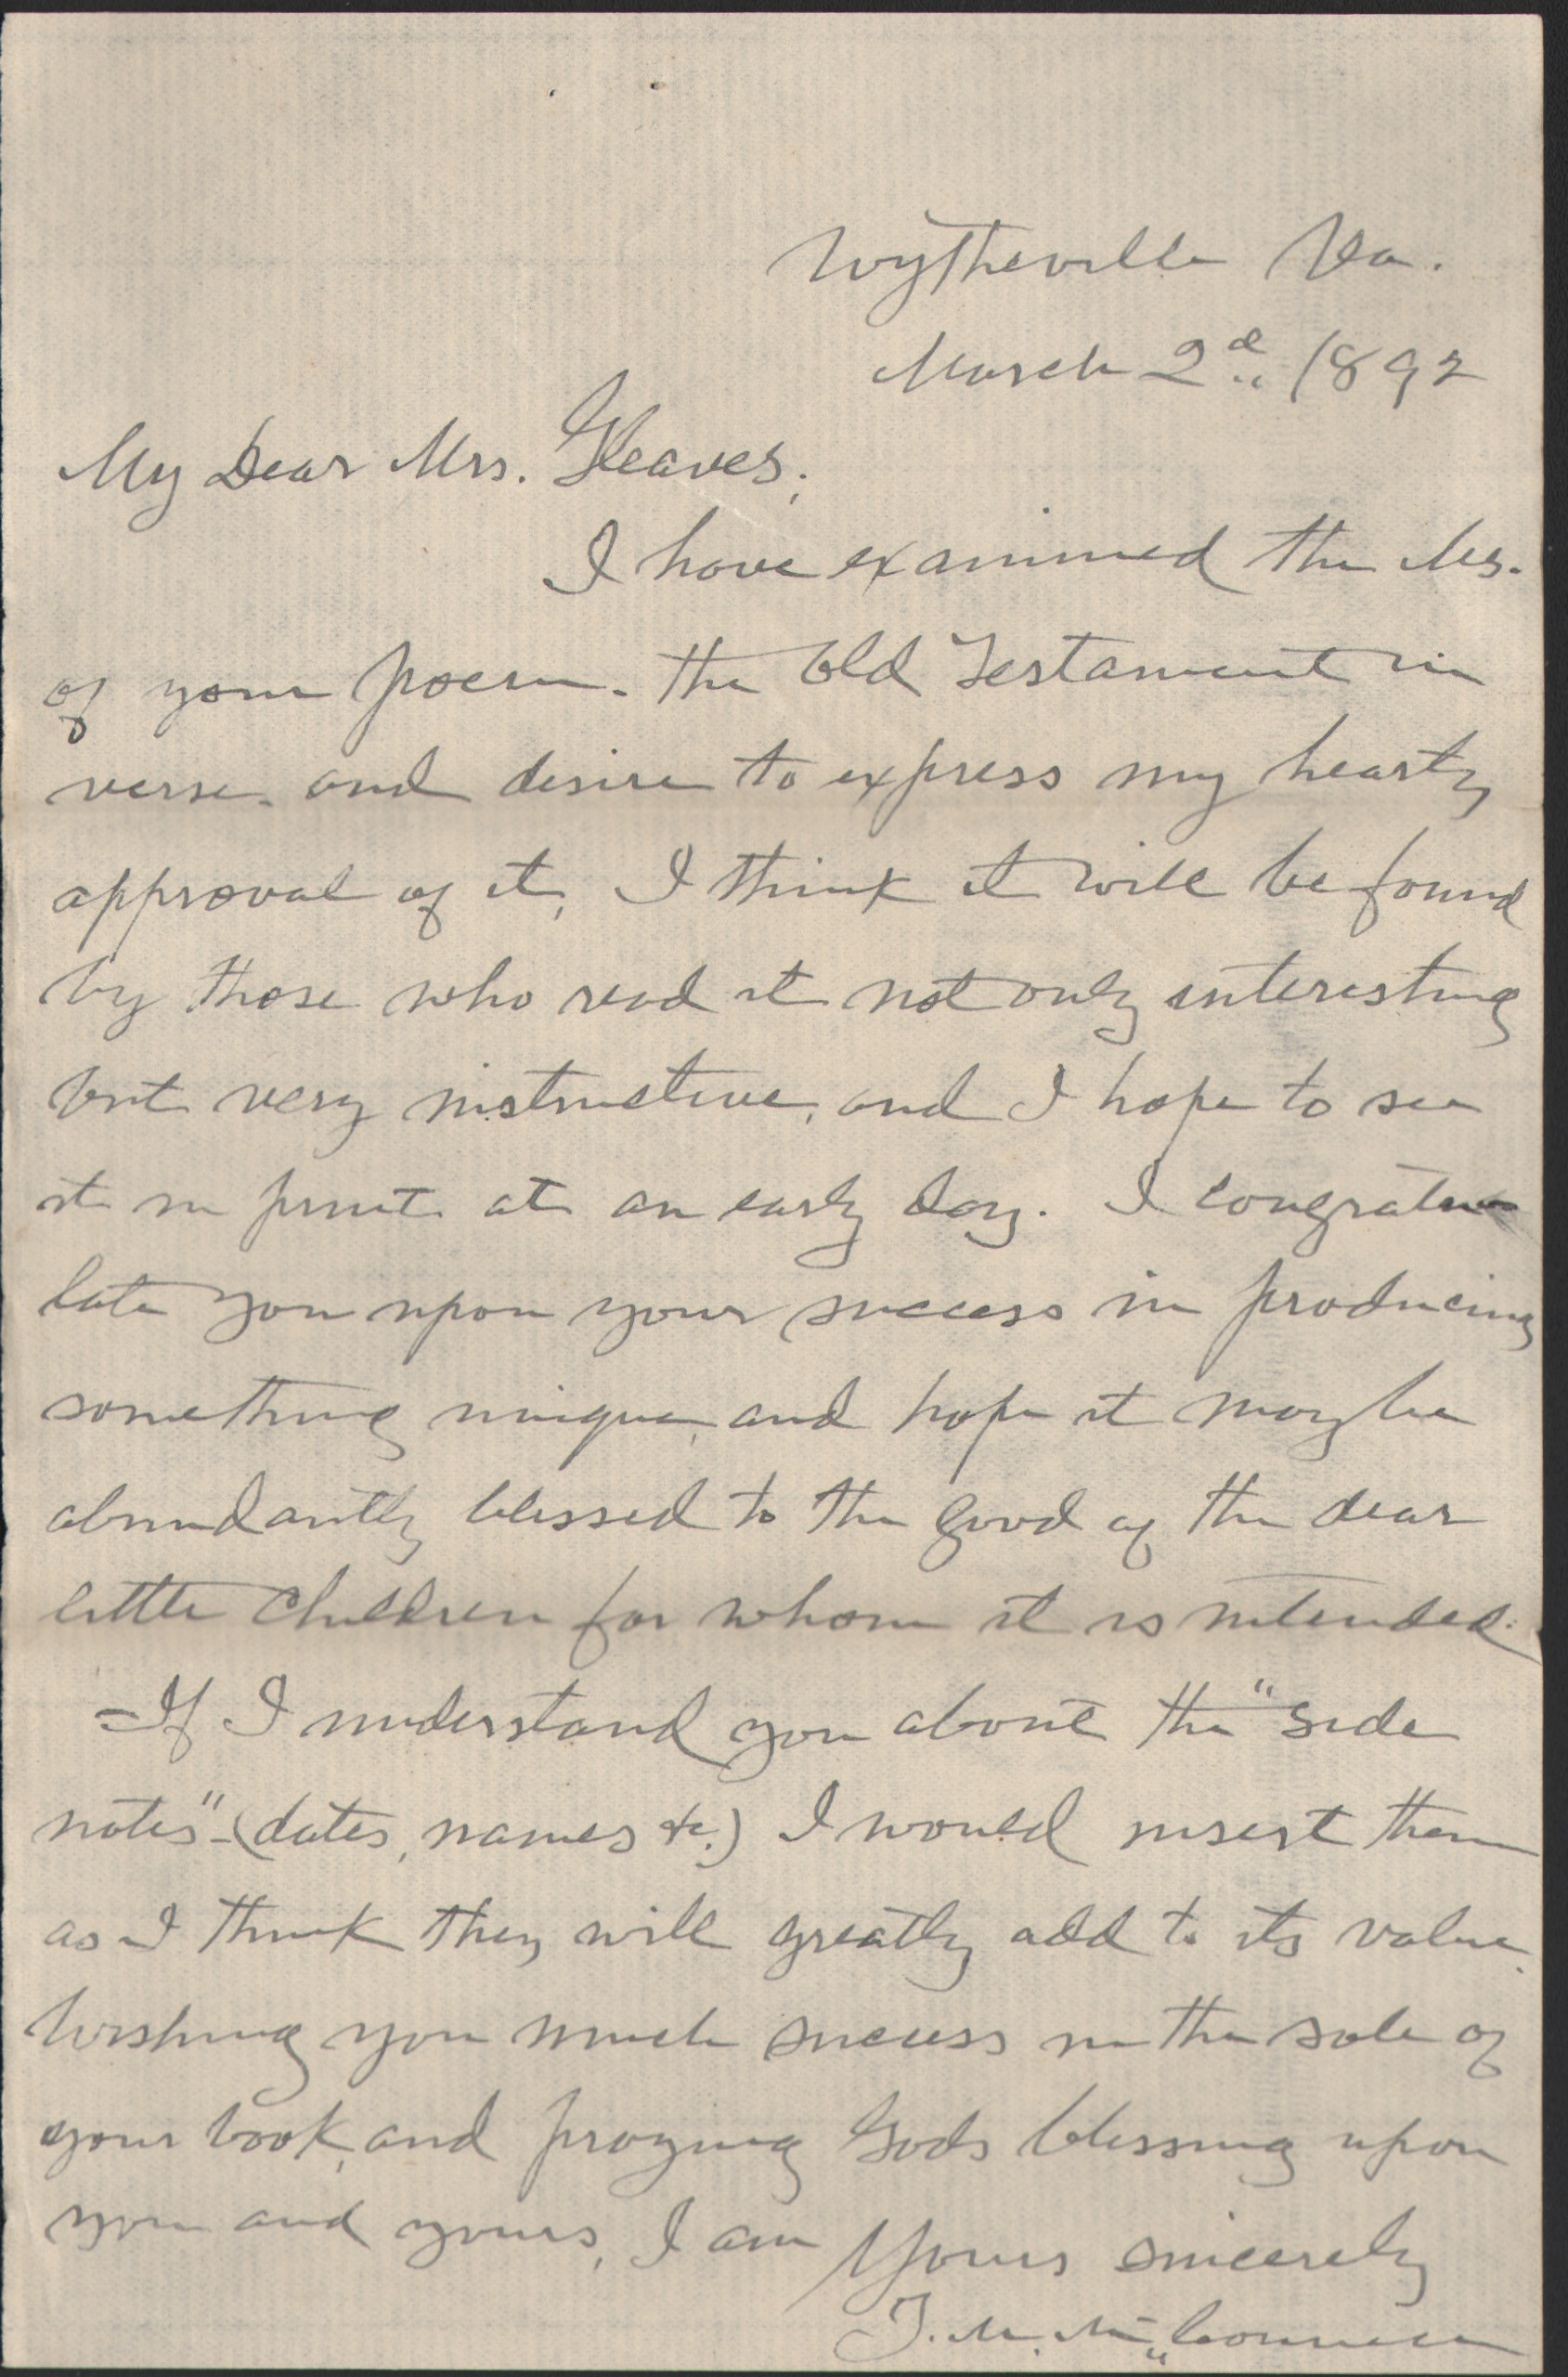 Wytheville Va.
March 2d 1892
My Dear Mrs. Gleaves,
I have examined the Ms.
of your poem. The Old Testament in
verse. and desire to express my hearty
approval of it, I think it will be found
by those who read it not only interesting
but very instructive, and I hope to see
it in print at an early day. I congratu
late you upon your success in producing
something unique, and hope it may be
abundantly blessed to the good of the dear
little children for whom it is intended.
-If I understand you about the "side
notes"-(dates, names &c.) I would insert them
as I think they will greatly add to its value.
Wishing you much success in the sale of
your book, and praying Gods blessing upon
you and yours, I am Yours sincerely
T. M. McConnell